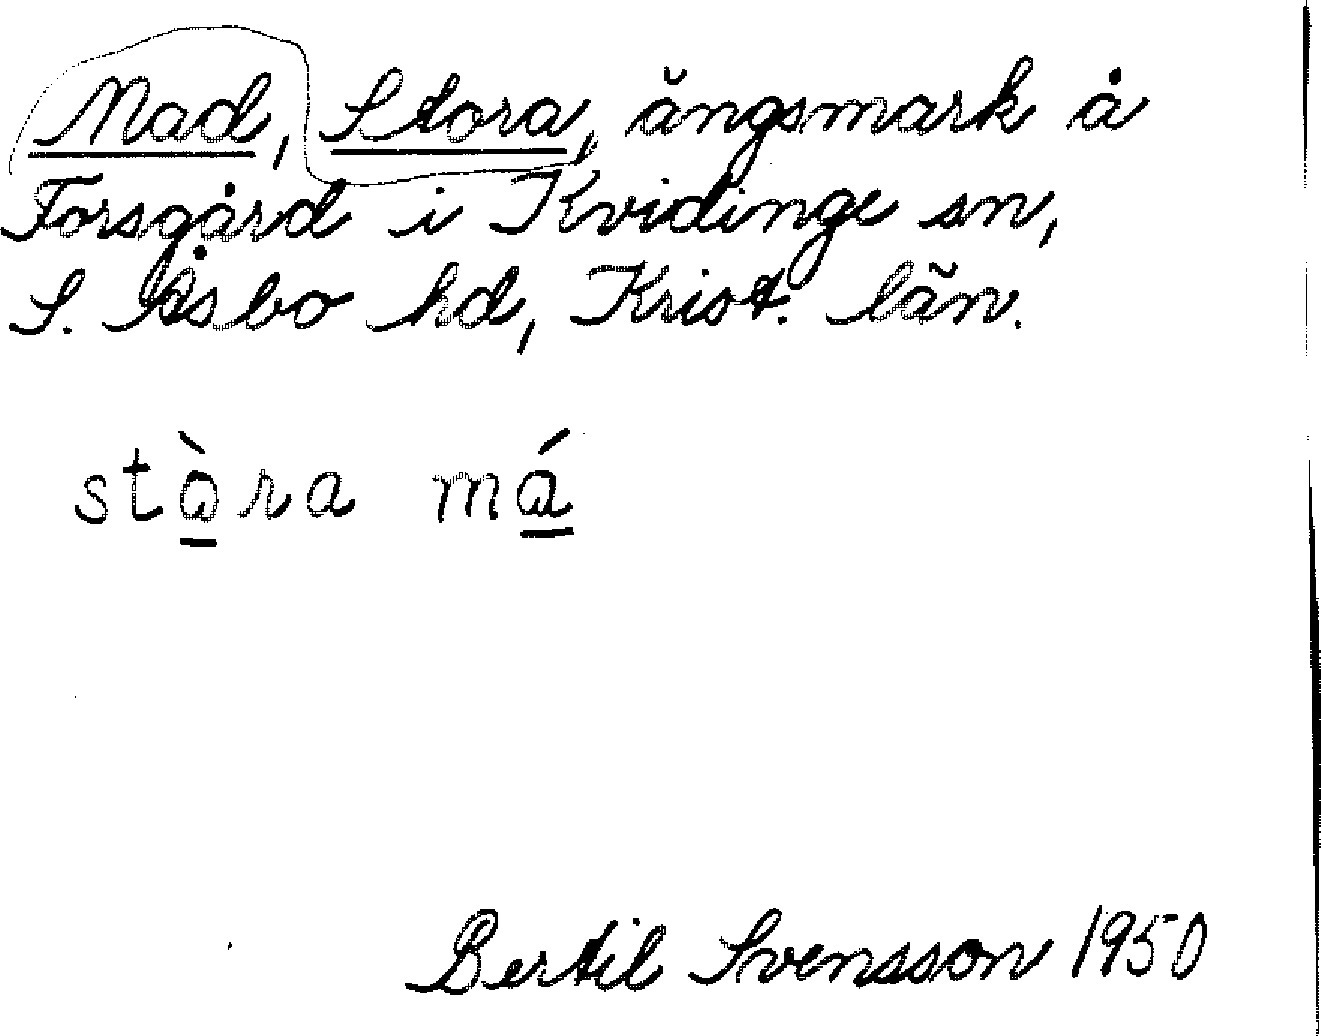 Mad, Stora, ängsmark å
Forsgård i Kvidinge sn,
S. Åsbo hd, Krist. län.
stò̠ra má̠
Bertil Svensson 1950